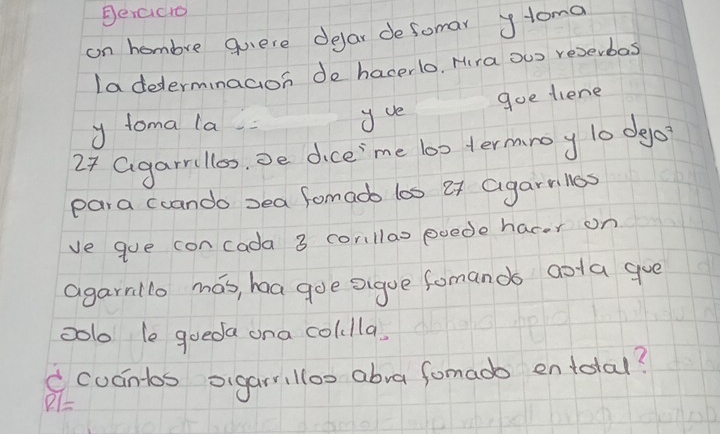 Ejercicio
un hombre quiere dejar de fomar y toma
la determinación de hacerlo. Mira sus reserbas
y toma la y ve que tiene
27 cigarrillos. Se dice "me los termino y lo dejo"
para cuando sea fomado los 27 cigarrillos
ve que con cada 3 corillas puede hacer un
cigarrillo más, haa que sigue fomando asta que
solo le queda una colilla.
¿Cuántos sigarrillos abra fomado en total?
R/=